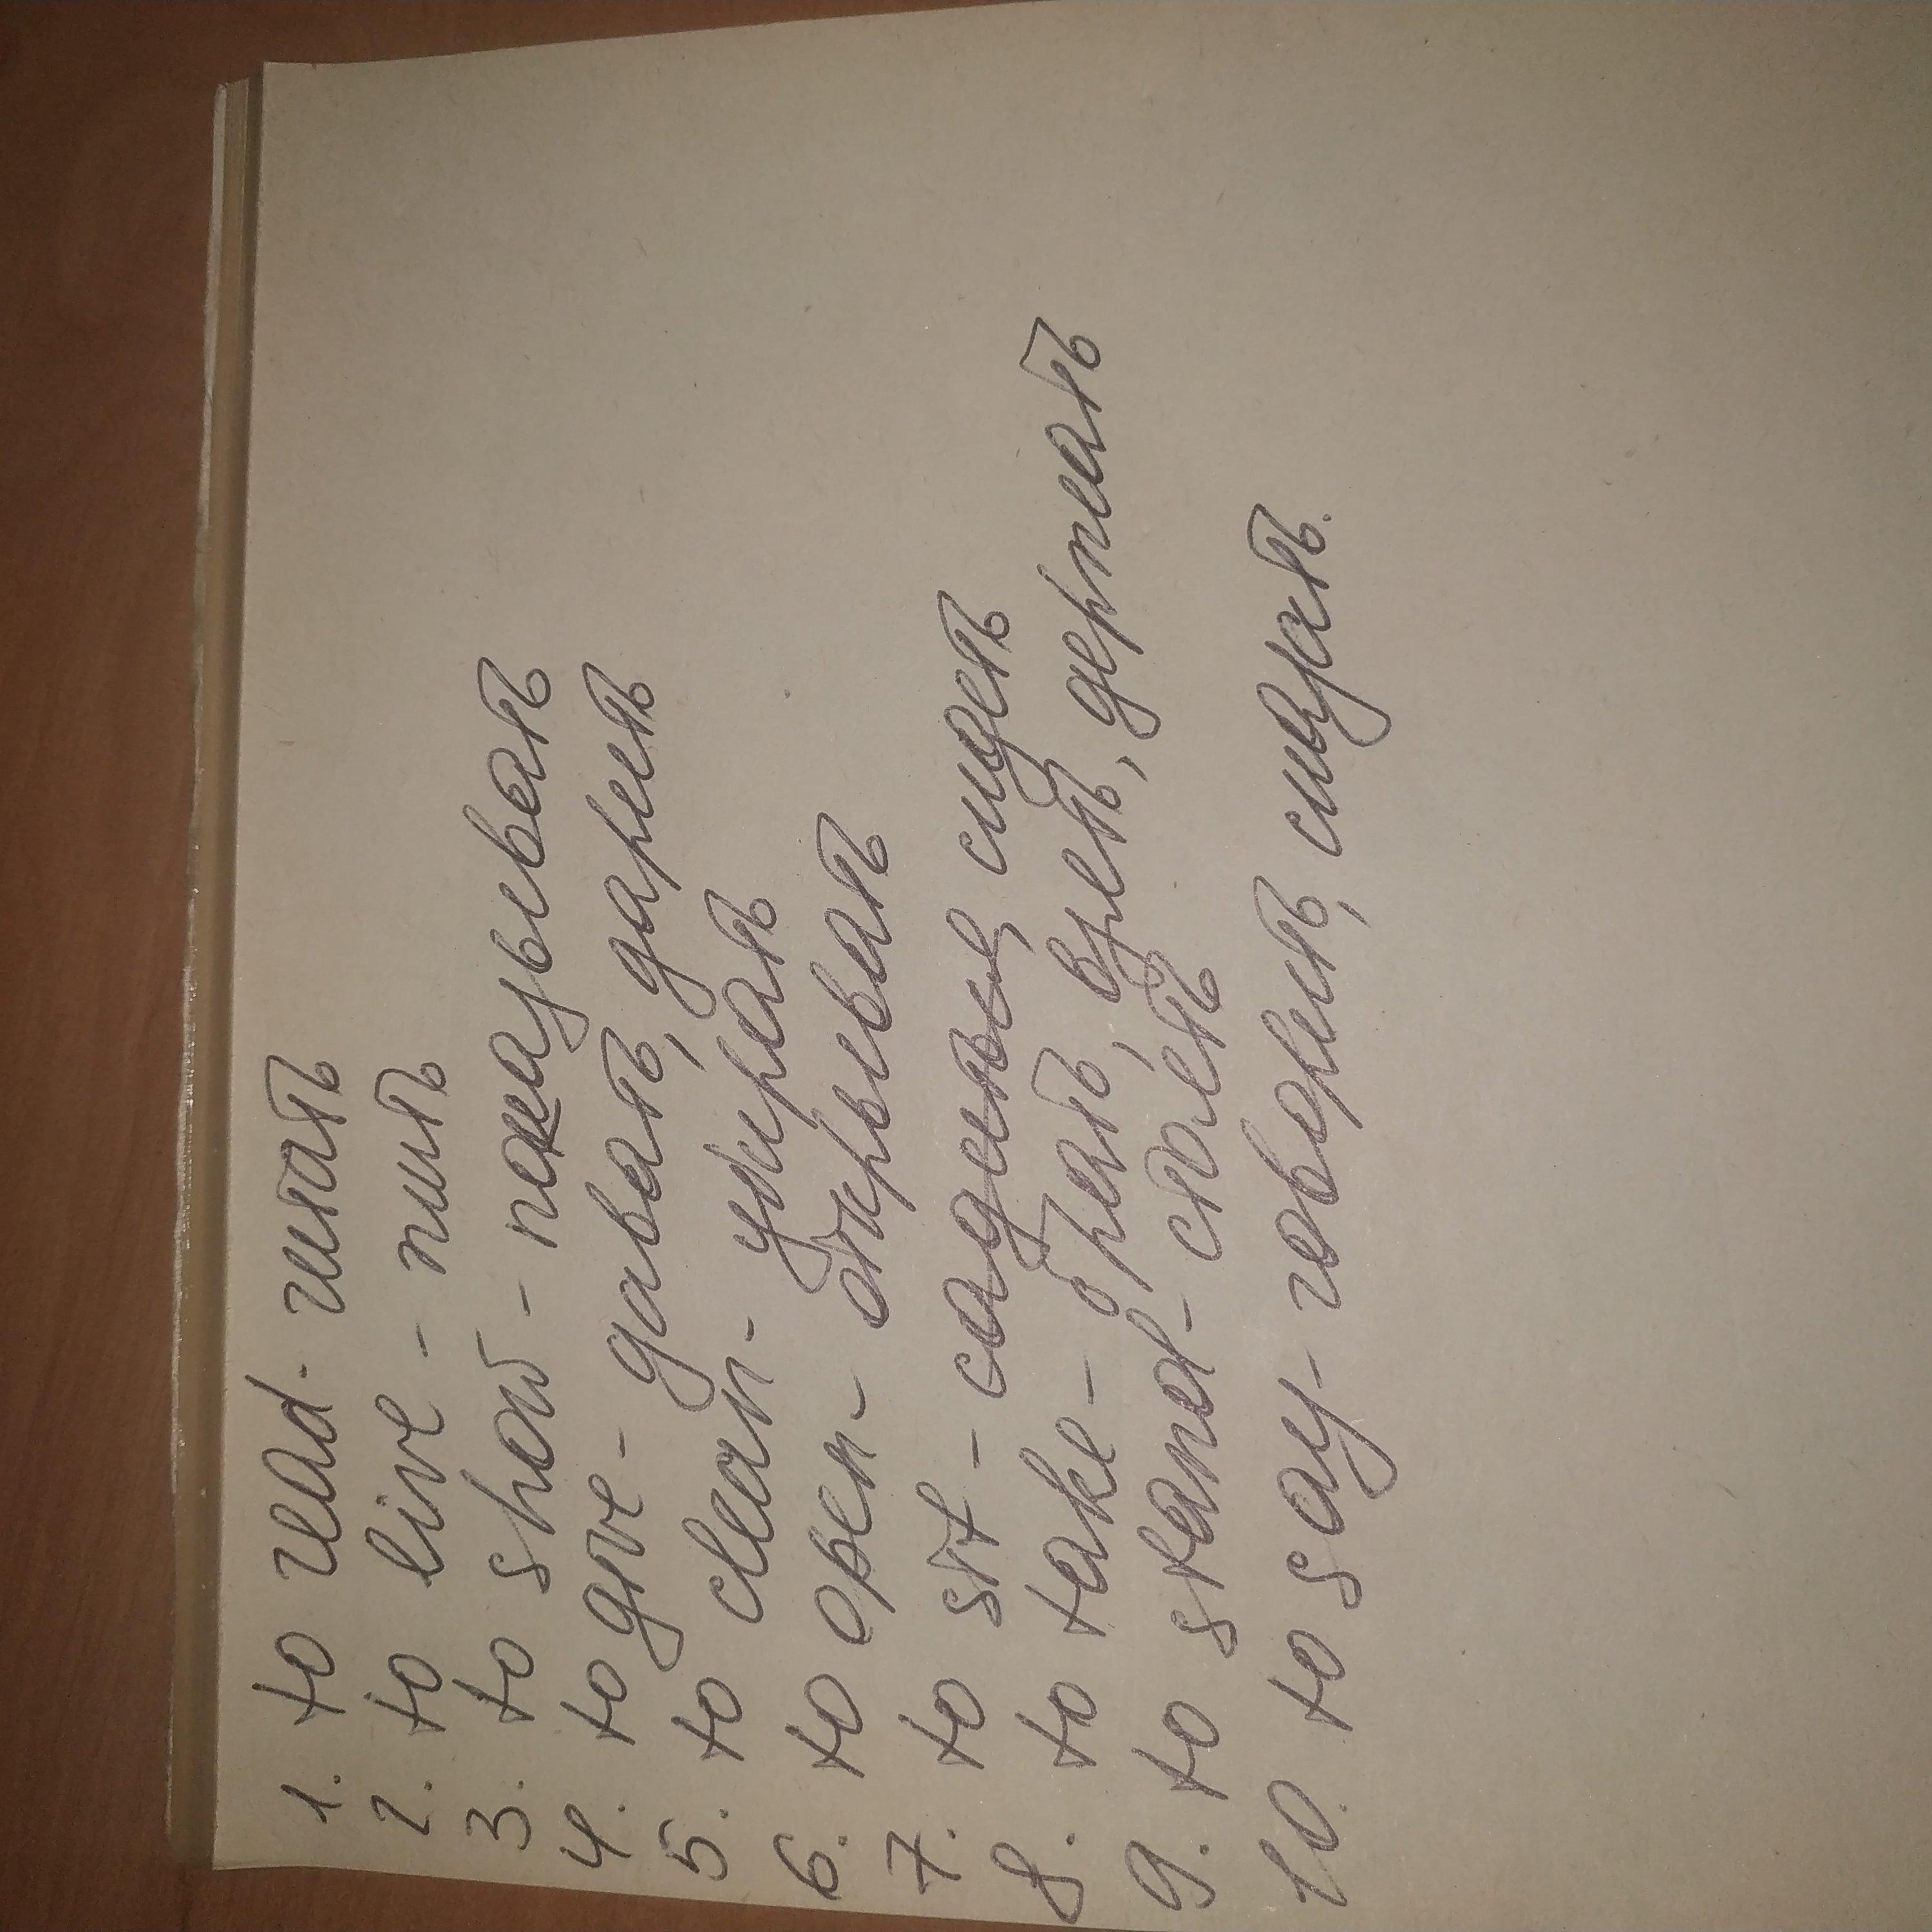 1. to read- читать
2. to live - жить
3. to show - показывать
4. to give - давать, дарить
5. to clean- убирать
6. to open- открывать
7. to sit - садиться, сидеть
8. to take - брать, взять, держать
9. to stand- стоять
10. to say- говорить, сказать.